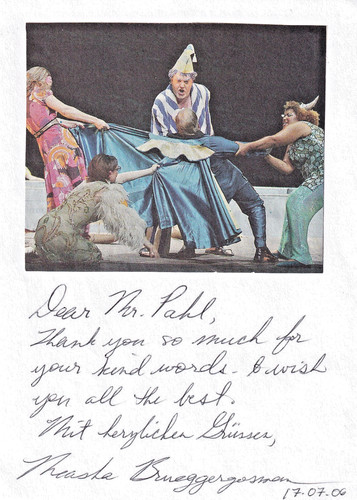 Dear Mr. Pahl,
Thank you so much for
your kind words. I wish
you all the best.
Mit herzlichen Grüssen,
Measha Brueggergosman
17.07.06